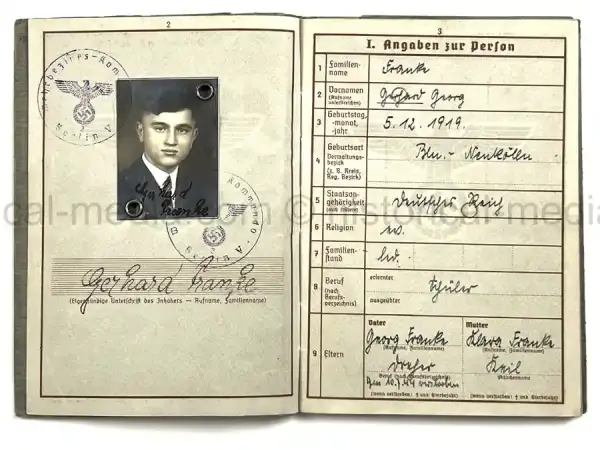 2
Wehrbezirks-Kommando
Berlin V
Gerhard
Franke
Kommando
Berlin V
Gerhard Franke
(Eigenhändige Unterschrift des Inhabers — Rufname, Familienname)
3
I. Angaben zur Person
1 Familien-
name
Franke
2 Vornamen
(Rufname
unterstreichen)
Gerhard Georg
3 Geburtstag,
-monat,
-jahr
5.12.1919.
4 Geburtsort
Verwaltungs-
bezirk
(z. B. Kreis,
Reg. Bezirk)
Bln.-Neukölln
5 Staatsan-
gehörigkeit
(auch frühere)
Deutsches Reich
6 Religion
ev.
7 Familien-
stand
led.
8 Beruf
(nach
Berufs-
verzeichnis)
erlernter
Schüler
ausgeübter
9 Eltern
Vater
Georg Franke
(Rufname, Familienname)
Dreher
Beruf (nach Berufsverzeichnis)
Am 10.7.44 verstorben
(wenn verstorben: † und Sterbejahr)
Mutter
Klara Franke
(Rufname, Familienname)
Keil
(Mädchenname)
(wenn verstorben: † und Sterbejahr)
cal-media.com © historical-media